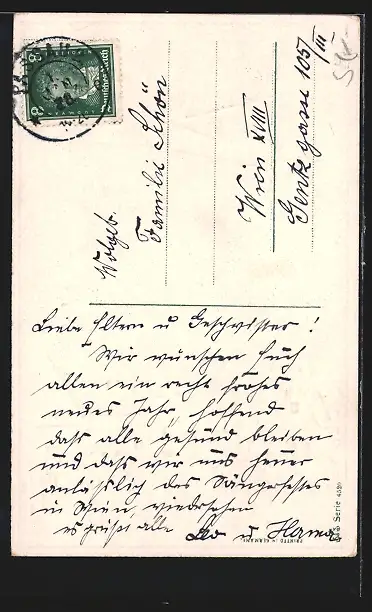 Wolgeb.
Familie Schön
Wien XVIII
Gentzgasse 105/III
Liebe Eltern u Geschwister!
Wir wünschen Euch
allen ein recht frohes
neues Jahr, hoffend
dass alle gesund bleiben
und dass wir uns heuer
anlässlich des Sängerfestes
in Wien, wiedersehen
es grüsst alle Leo u Herma
PRINTED IN GERMANY
Serie
Deutsches Reich
8 8